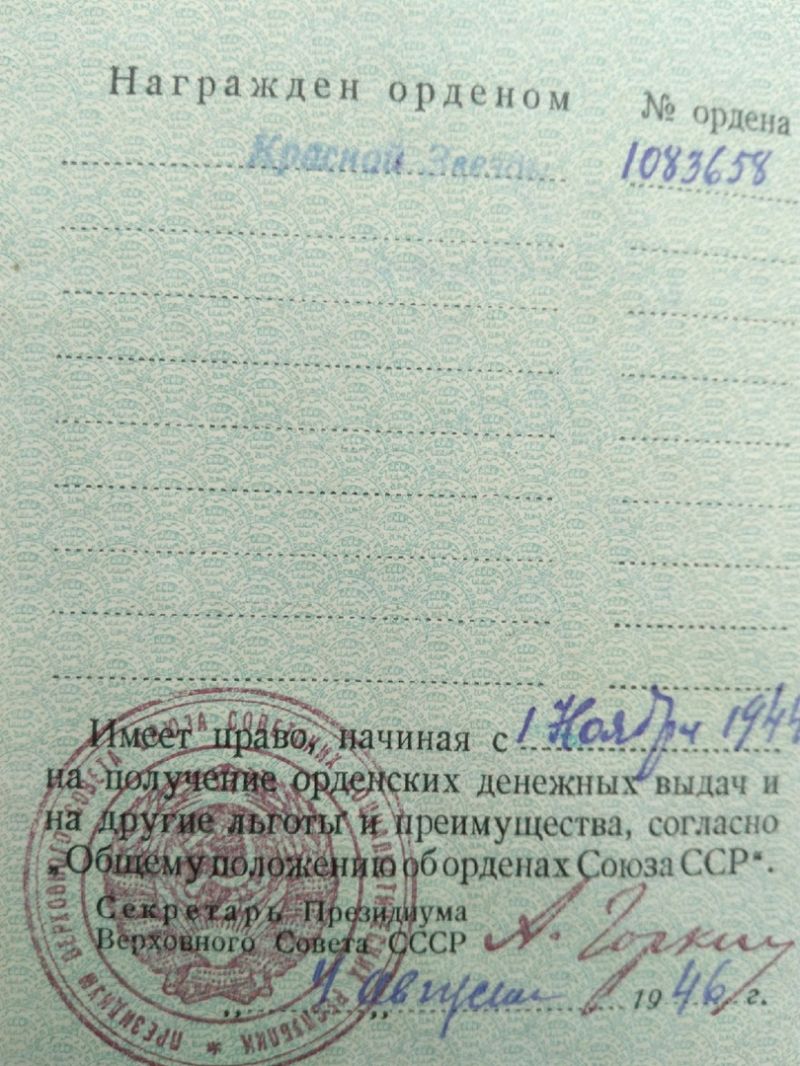 Награжден орденом
№ ордена
Красной Звезды
1083658
Имеет право, начиная с 1 Ноября 1944
на получение орденских денежных выдач и
на другие льготы и преимущества, согласно
„Общему положению об орденах Союза ССР“.
Секретарь Президиума
Верховного Совета СССР А. Горкин
„4 августа„ 1946 г.
ПРЕЗИДИУМ ВЕРХОВНОГО СОВЕТА СОЮЗА СОВЕТСКИХ СОЦИАЛИСТИЧЕСКИХ РЕСПУБЛИК